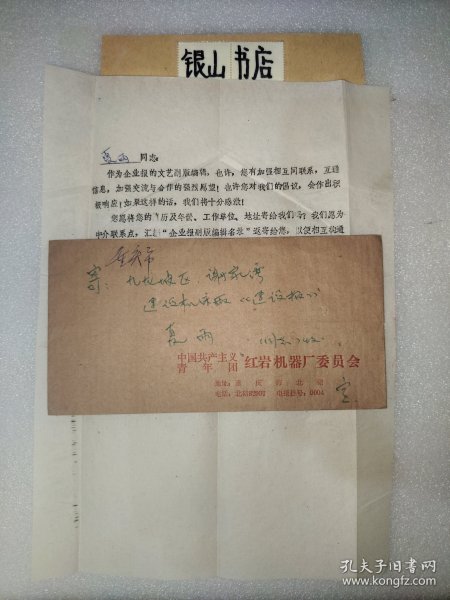 银山书店
夏雨同志:
作为企业报的文艺副版编辑，也许，您有加强相互间联系，互通
信息，加强交流与合作的强烈愿望！也许您对我们的倡议，会作出积
极响应！如果这样的话，我们将十分感激！
您愿将您的 历及年龄、工作单位、地址寄给我们 我们愿为
中介联系点，汇 “企业报副版编辑名录”返寄给您，以便相互沟通
重庆市
寄：九龙坡区 谢家湾
建设机床厂《建设报》
夏雨 (同志)收
中国共产主义
青年团 红岩机器厂委员会
地址：重庆市北碚
电话：北碚 电报挂号：0004
孔夫子旧书网
www.kongfz.com